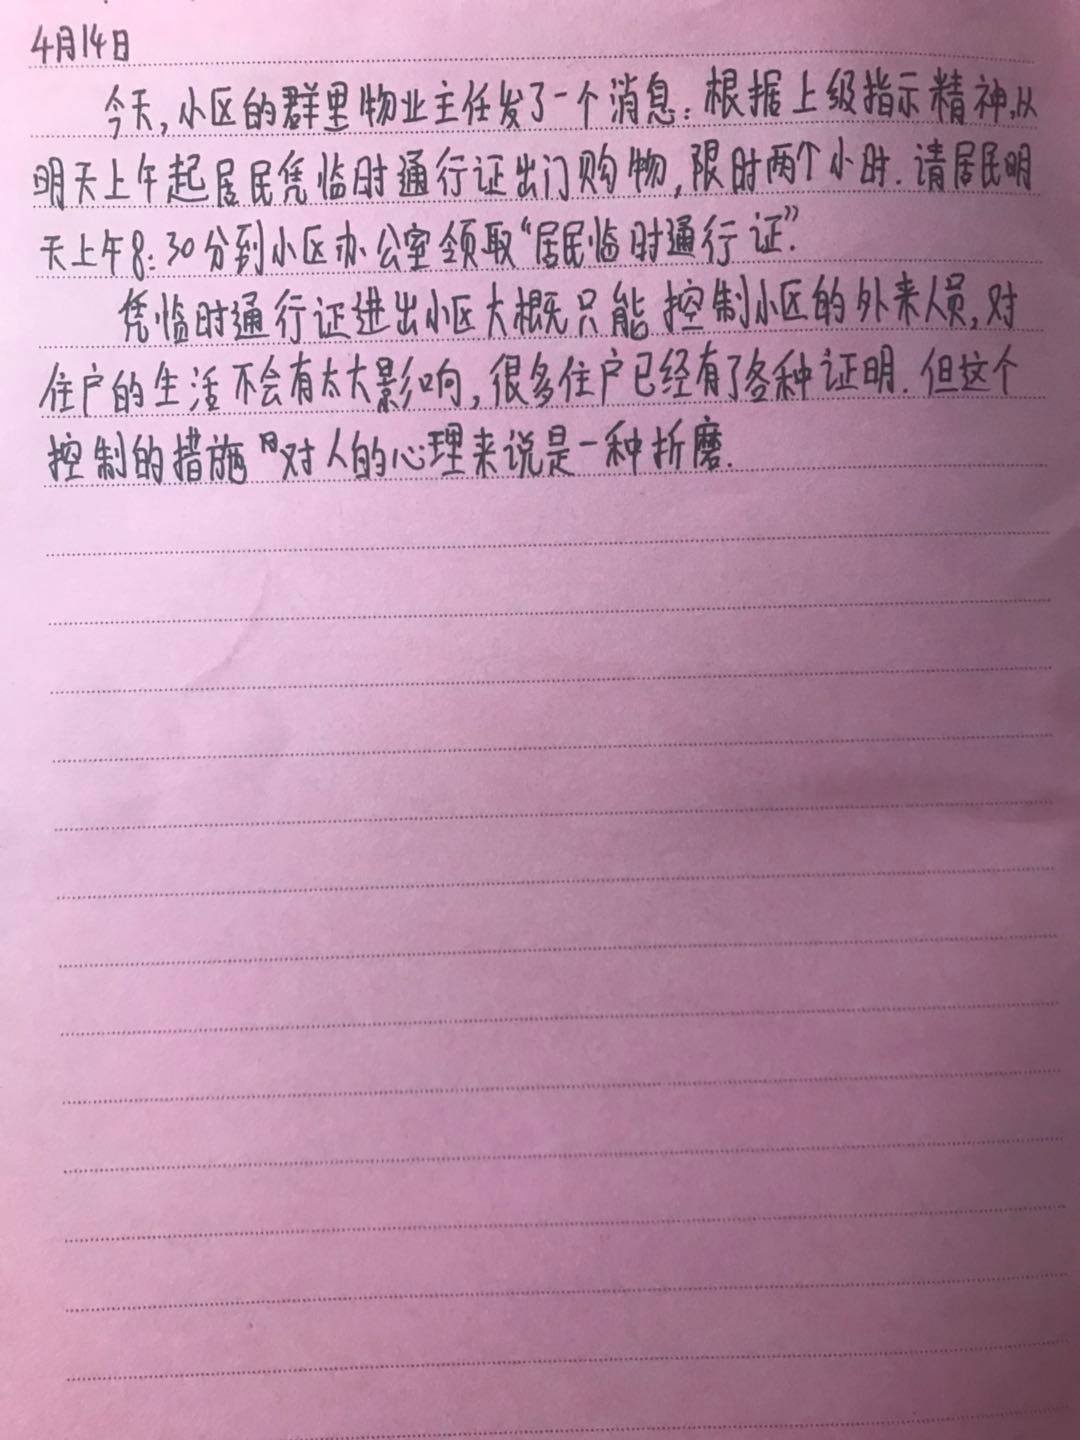 4月14日
今天,小区的群里物业主任发了一个消息:根据上级指示精神,从
明天上午起居民凭临时通行证出门购物,限时两个小时.请居民明
天上午8:30分到小区办公室领取“居民临时通行证”.
凭临时通行证进出小区大概只能控制小区的外来人员,对
住户的生活不会有太大影响,很多住户已经有了各种证明.但这个
控制的措施对人的心理来说是一种折磨.